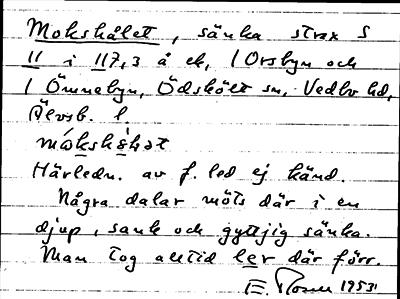 Mokshålet, sänka strax S
11 i 117,3 å ek, 1 Orsbyn och
1 Ömnebyn, Ödskölt sn, Vedbo hd,
Älvsb. l.
måkshålət
Härledn. av f. led ej känd.
Några dalar möts där i en
djup, sank och gyttjig sänka.
Man tog alltid ler där förr.
E. 1953